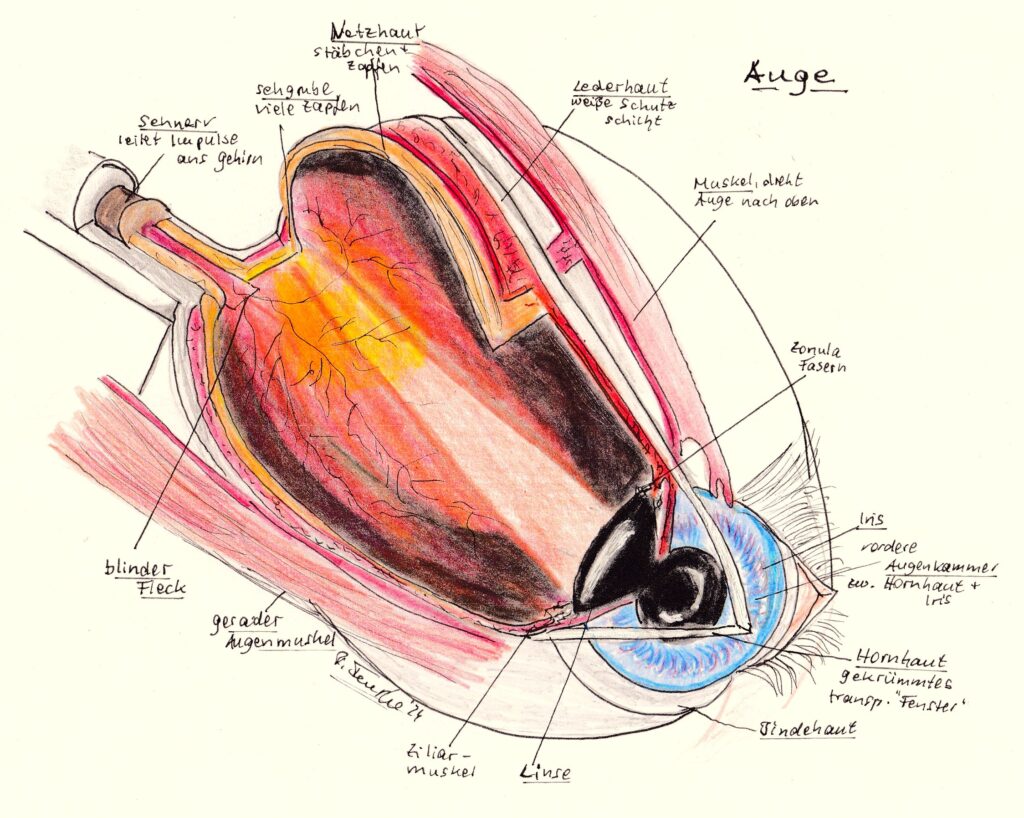 Auge
Netzhaut
stäbchen +
Zapfen
sehgrube
viele Zapfen
Sehnerv
leitet Impulse
ans gehirn
Lederhaut
weiße Schutz
schicht
Muskel, dreht
Auge nach oben
Zonula
Fasern
Iris
vordere
Augenkammer
zw. Hornhaut +
Iris
Hornhaut
gekrümmtes
transp. "Fenster"
Bindehaut
Linse
Ziliar-
muskel
gerader
Augenmuskel
blinder
Fleck
'24